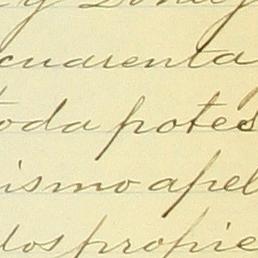 y Doney
cuarenta
toda potes
ismo apel
los propie